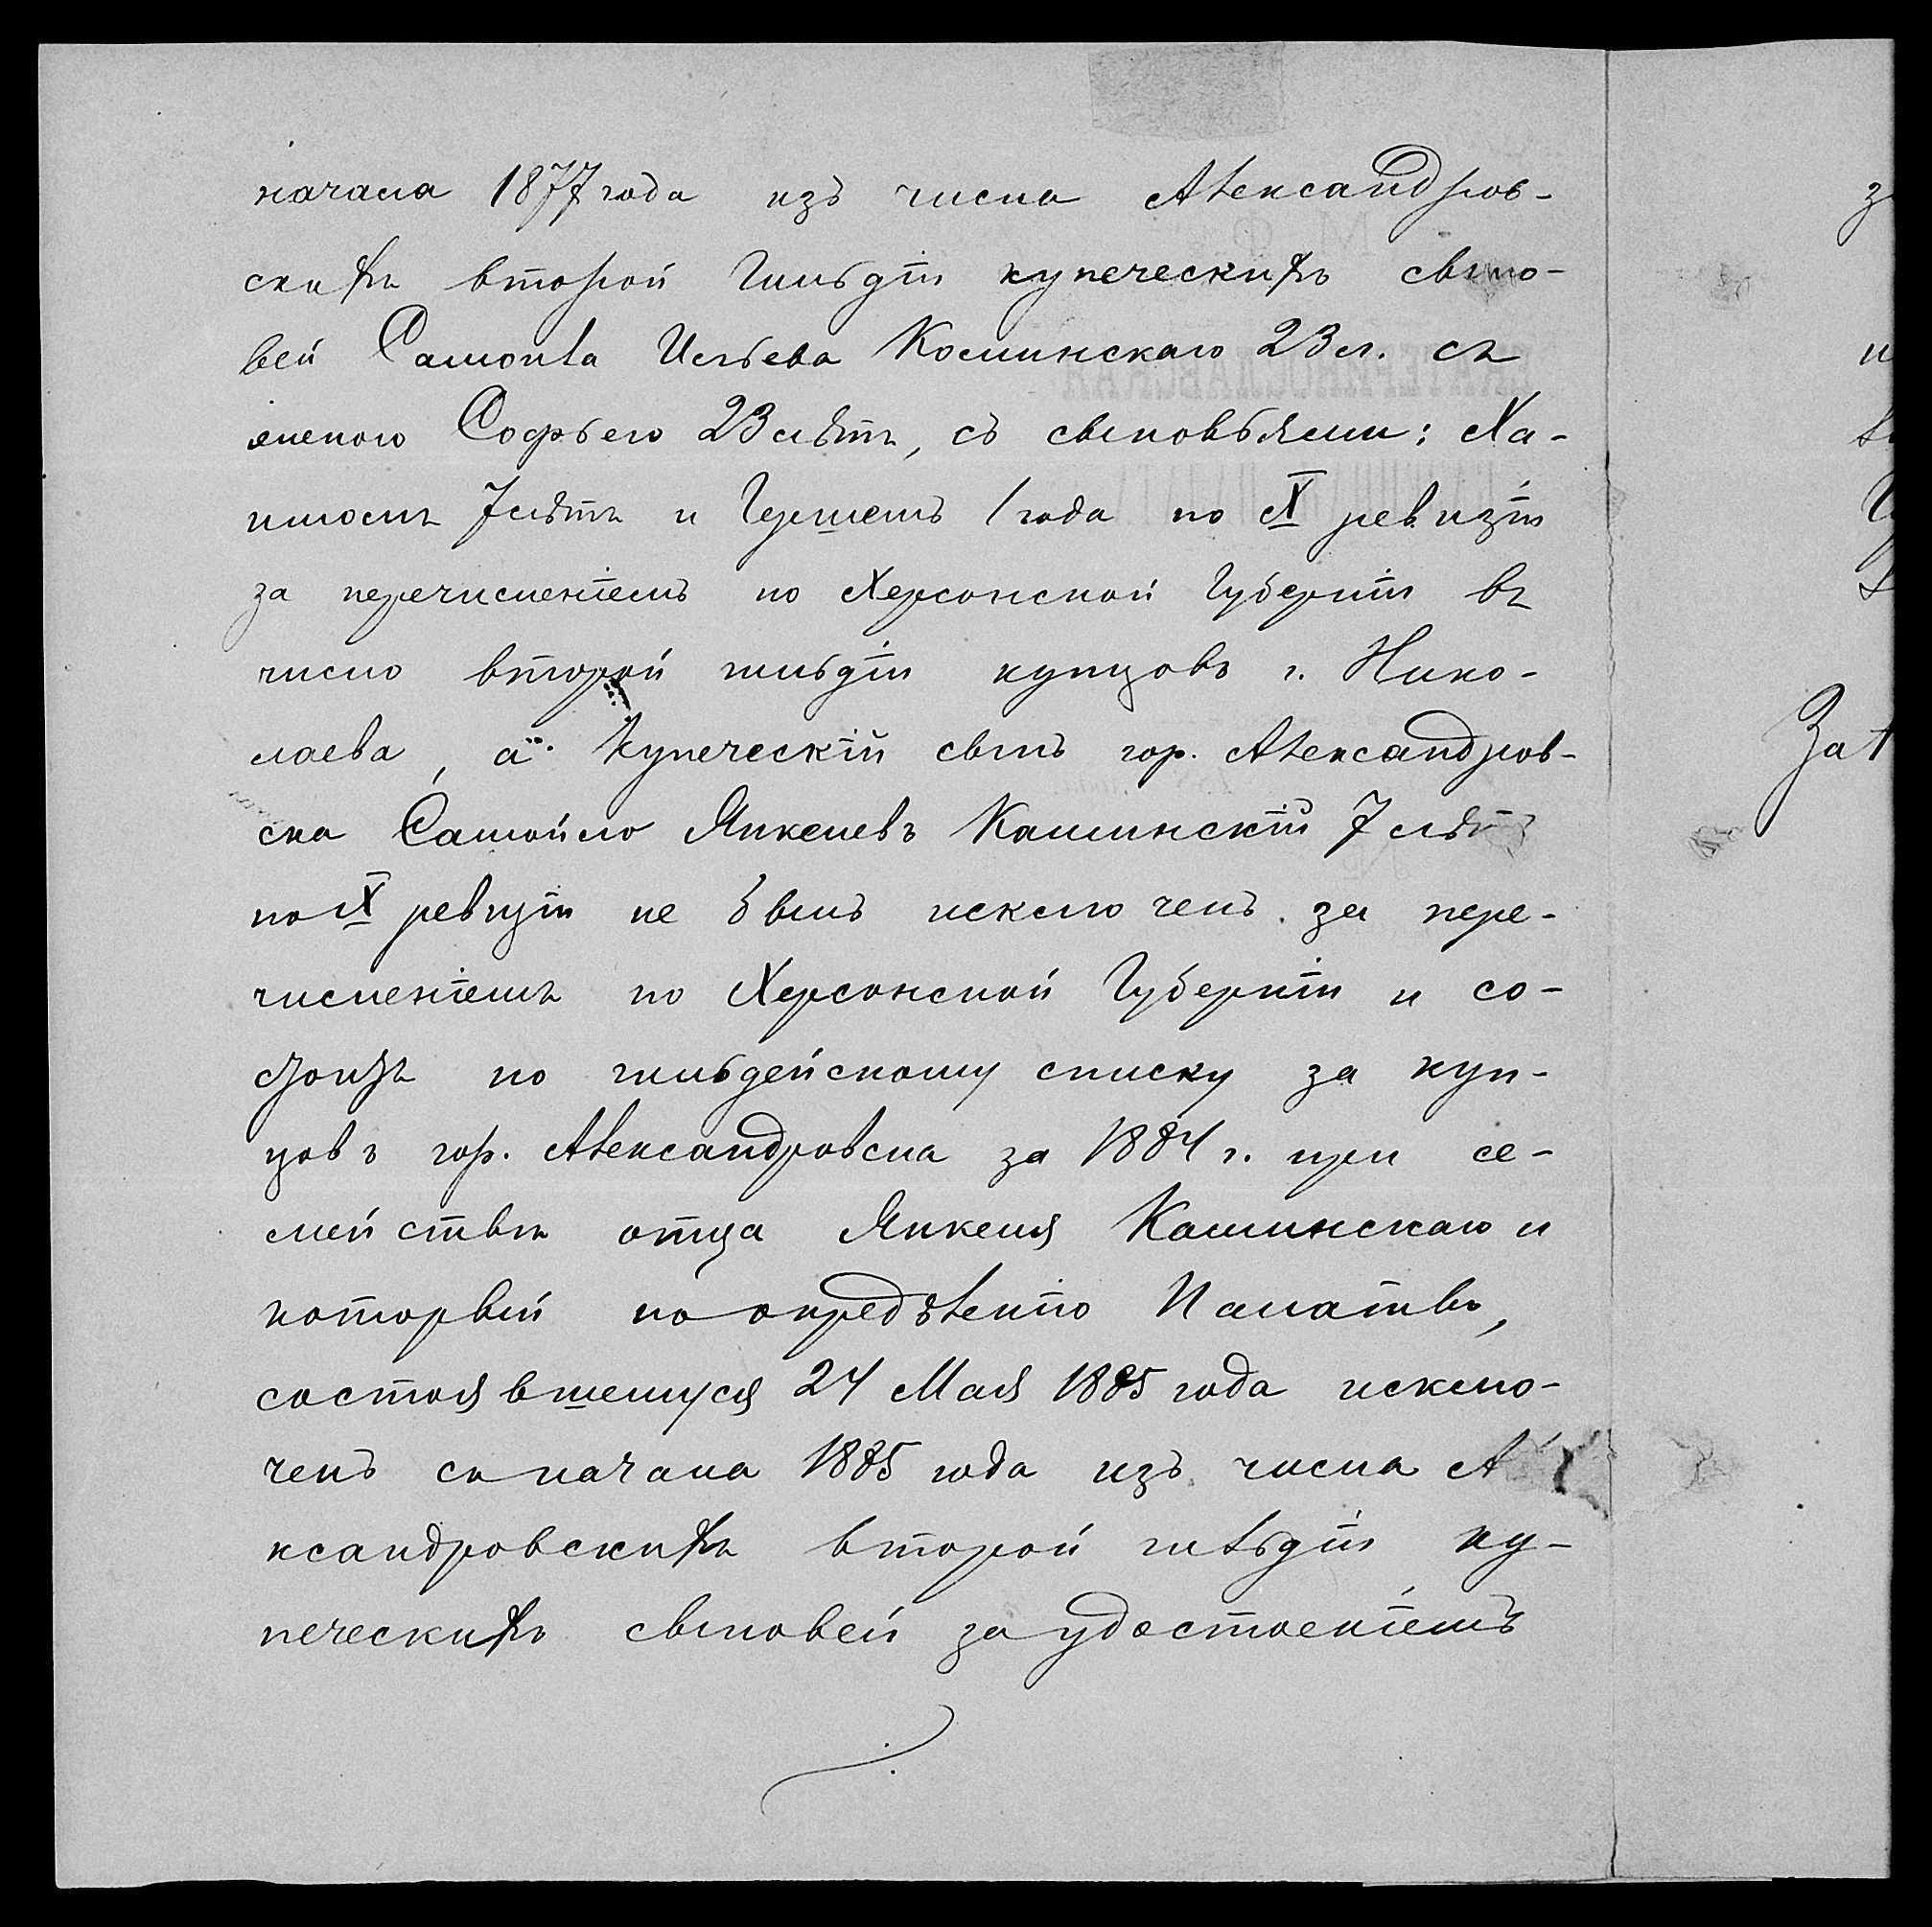 начала 1877 года изъ числа Александров-
скихъ второй Гильдіи купеческихъ сыно-
вей Самоила Ильева Коминскаго 23 л. съ
женою Софьею 23 лѣтъ, съ сыновьями: Ха-
имомъ 7 лѣтъ и Гершемъ 1 года по X ревизіи
за перечисленіемъ по Херсонской Губерніи въ
число второй гильдіи купцовъ г. Нико-
лаева, а Купеческій сынъ гор. Александров-
ска Самойло Янкелевъ Каминскій 7 лѣтъ
по X ревизіи не былъ исключенъ за пере-
численіемъ по Херсонской Губерніи и со-
стоитъ по гильдейскому списку за куп-
цовъ гор. Александровска за 1884 г. при се-
мействѣ отца Янкеля Каминскаго и
который по опредѣленію Палаты,
состоявшемуся 24 Мая 1885 года исклю-
ченъ съ начала 1885 года изъ числа А
ксандровскихъ второй гильдіи ку-
печескихъ сыновей за удостоеніемъ
За